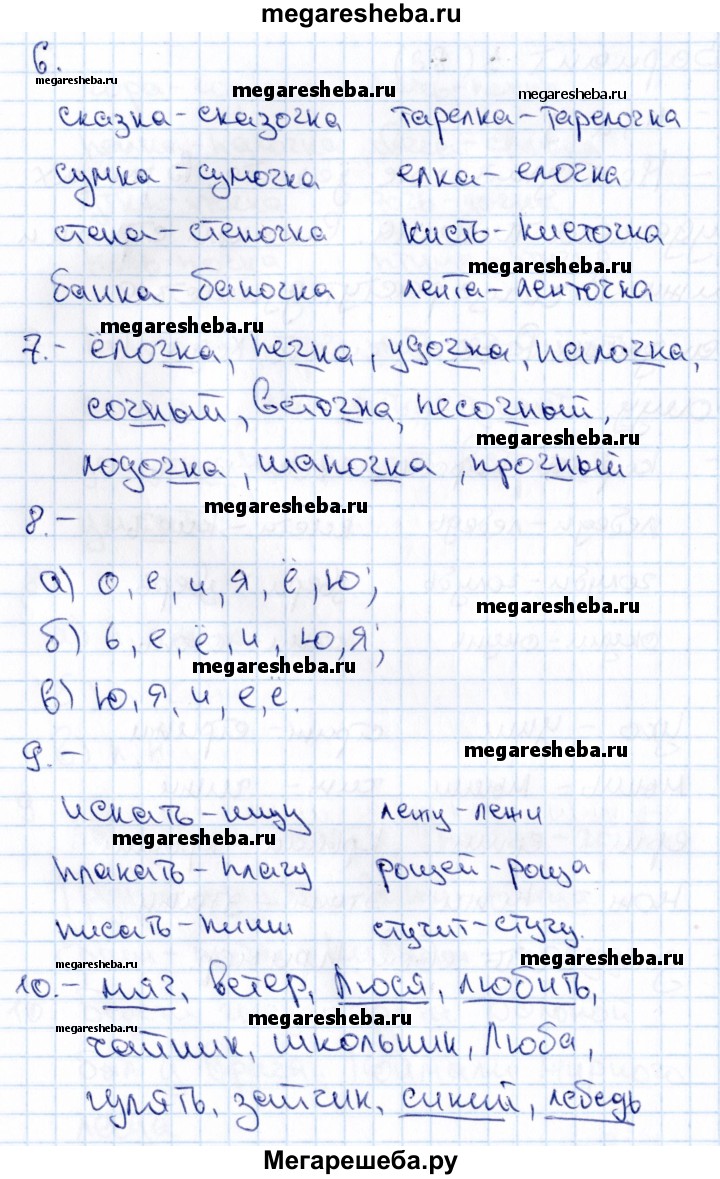 megaresheba.ru
6.
megaresheba.ru megaresheba.ru megaresheba.ru
сказка - сказочка тарелка - тарелочка
сумка - сумочка елка - елочка
стена - стеночка кисть - кисточка
megaresheba.ru
банка - баночка лента - ленточка
megaresheba.ru
7. - ёлочка, печка, удочка, палочка,
сочный, веточка, песочный,
megaresheba.ru
лодочка, шапочка, прочный
megaresheba.ru
8. -
а) о, е, и, я, ё, ю;
megaresheba.ru
б) ь, е, ё, и, ю, я;
megaresheba.ru
в) ю, я, и, е, ё.
9. -
megaresheba.ru
искать - ищу лежу - лежи
megaresheba.ru
плакать - плачу рощей - роща
писать - пиши стучит - стучу.
megaresheba.ru
10. - мяч, ветер, Люся, любить,
megaresheba.ru megaresheba.ru
чайник, школьник, Люба,
гулять, зайчик, синий, лебедь
Мегарешеба.ру